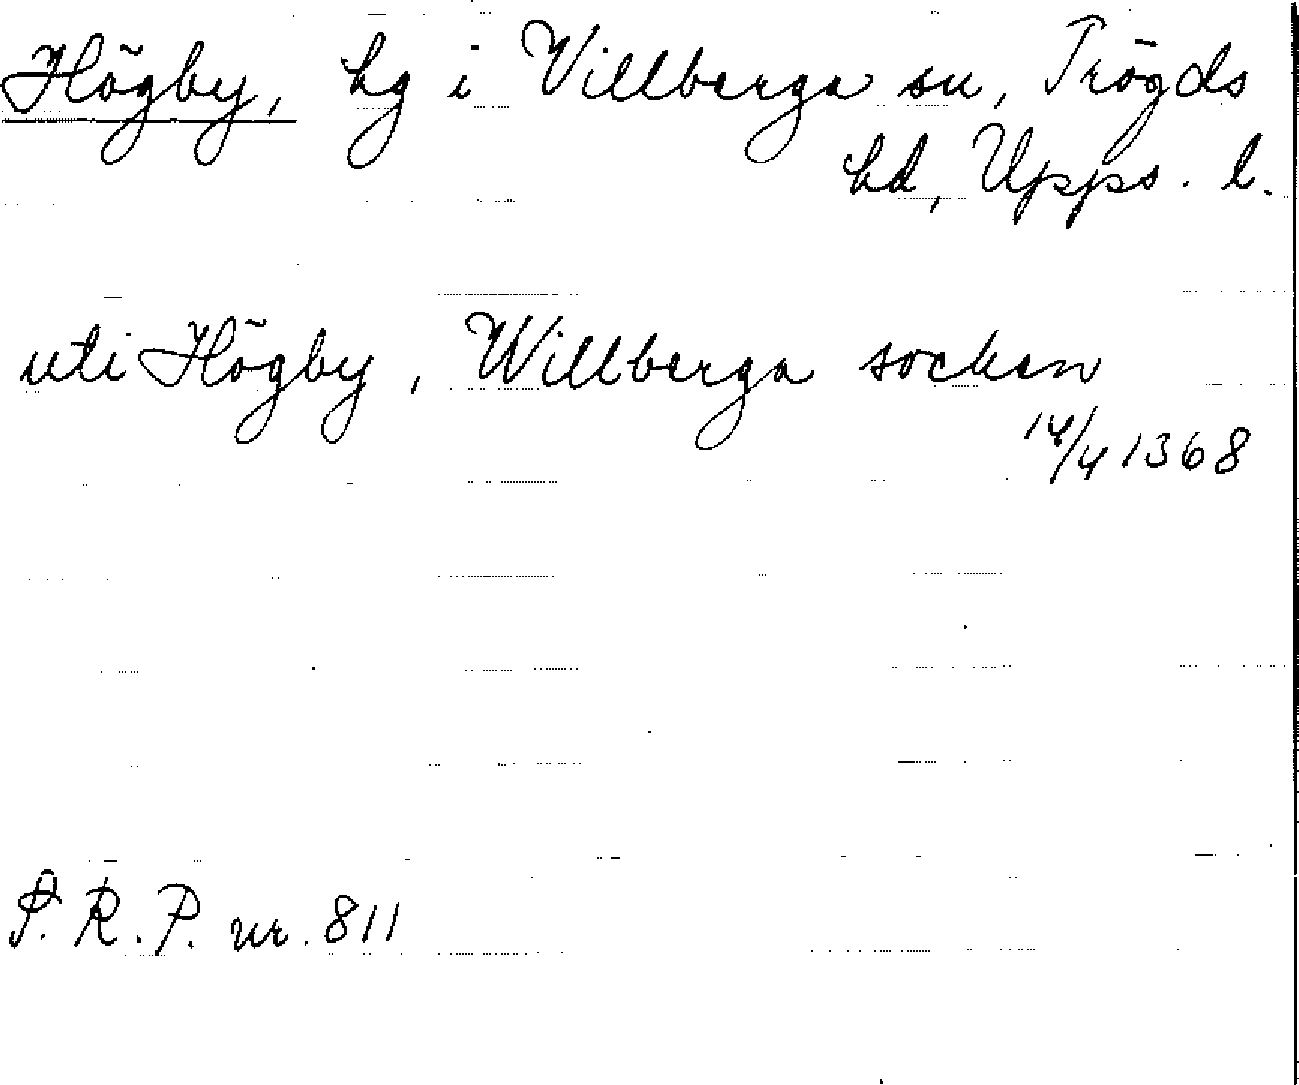 Högby, hg i Villberga sn, Trögds
hd, Upps. l.
uti Högby, Willberga socken
14/4 1368
S. R. P. nr. 811